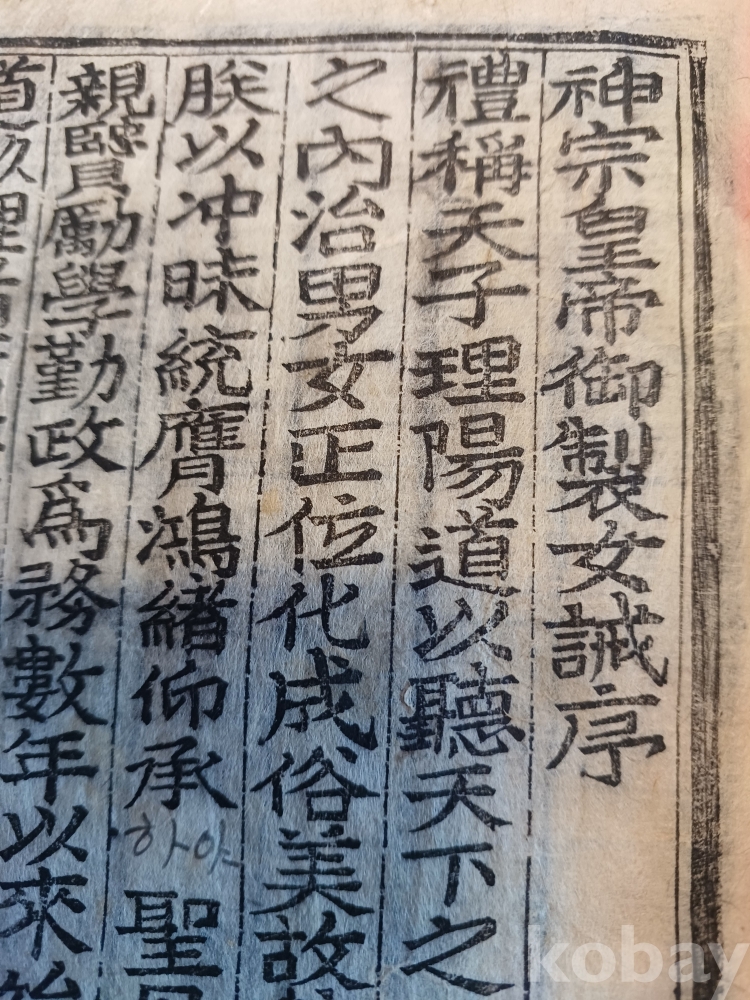 神宗皇帝御製女誡序
禮稱天子理陽道以聽天下之
之內治男女正位化成俗美故
朕以冲昧統膺鴻緒仰承
하야
聖
親賢勵學勤政為務數年以來始
道
理
kobay